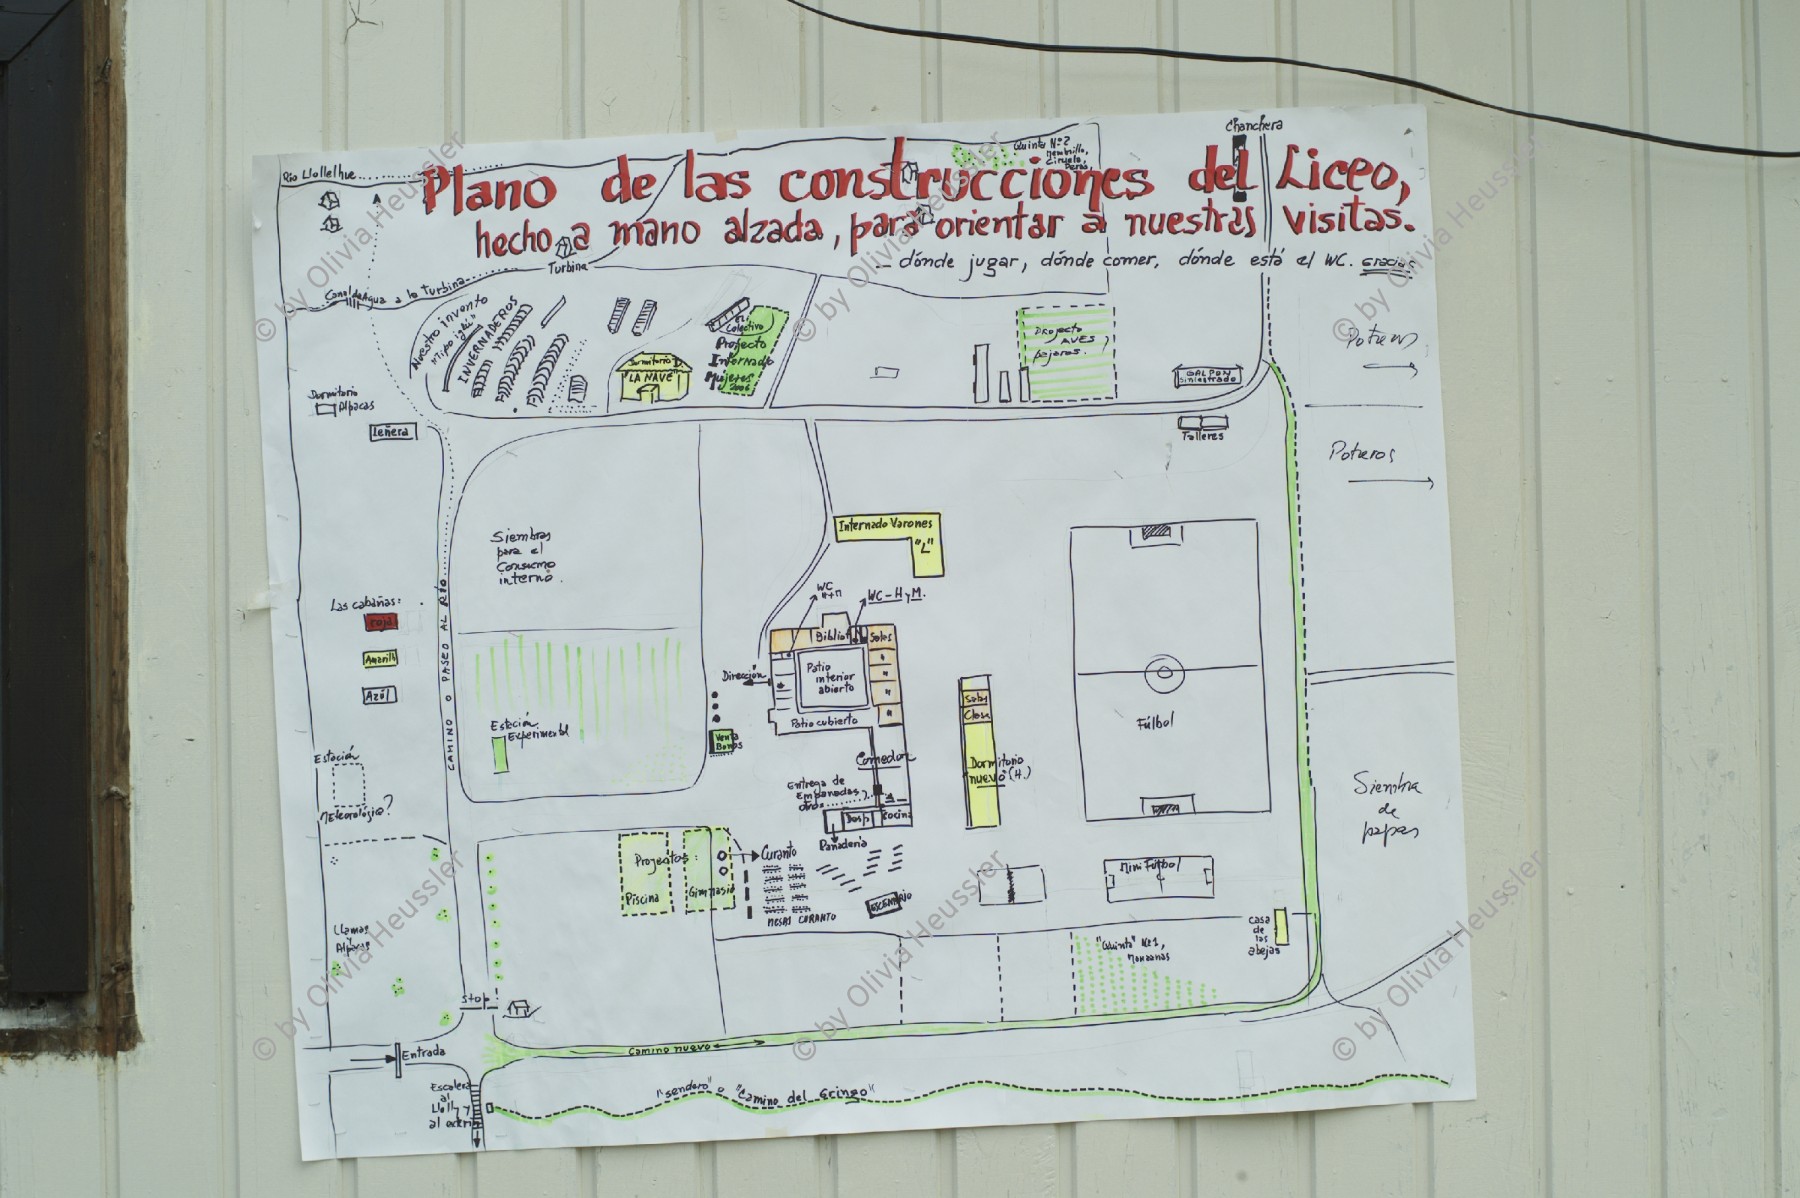 Chanchera
Río Llollelhue
Quinta Nº2
Membrillo,
Ciruelo,
Peras.
Plano de las construcciones del Liceo,
hecho a mano alzada, para orientar a nuestras visitas.
... dónde jugar, dónde comer, dónde está el WC. Gracias
Turbina
Canal de Agua a la Turbina
Nuestro invento
"Tipo iglú"
INVERNADEROS
El
Colectivo
Proyecto
Internado
Mujeres
2006
Dormitorio
"LA NAVE"
Proyecto
AVES,
pájaros.
GALPON
siniestrado
Talleres
Potreros
Potreros
Dormitorio
Alpacas
Leñera
Siembras
para el
Consumo
interno.
Internado Varones
"L"
WC
H+M
WC-H y M.
Las cabañas:
roja
Amarilla
Azul
CAMINO O PASEO AL RÍO
Bibliot
Salas
Patio
interior
abierto
Dirección
Patio cubierto
Venta
Bonos
Estación
Experimental
Salas
Clase
Dormitorio
nuevo (H.)
Comedor
Entrega de
Empanadas,
otros
Desp
Cocina
Panadería
Fútbol
Siembra
de
papas
Estación
Meteorológica?
Proyectos:
Piscina
Gimnasio
Curanto
MESAS CURANTO
ESCENARIO
Mini Fútbol
casa
de
las
abejas
"Quinta" Nº1,
Manzanas
Llamas
Alpacas
Stop
Entrada
Camino nuevo
Escalera
al
Llolly y
al exterior
"sendero" o "Camino del Gringo"
© by Olivia Heussler
© by Olivia Heussler
© by Olivia Heussler
© by Olivia Heussler
© by Olivia Heussler
© by Olivia Heussler